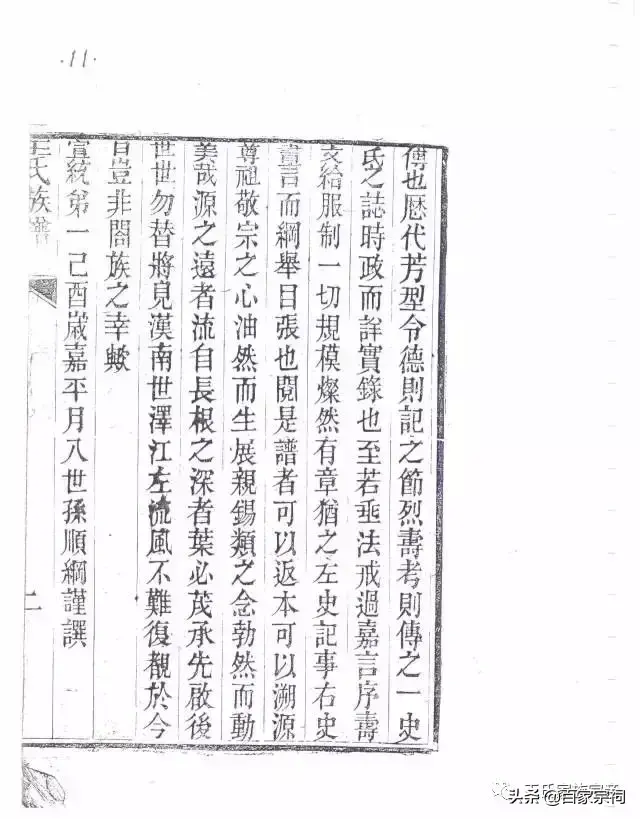 11.
傳也歷代芳型令德則記之節烈壽考則傳之一史
氏之誌時政而詳實錄也至若垂法戒過嘉言序壽
支給服制一切規模燦然有章猶之左史記事右史
書言而綱舉目張也閱是譜者可以返本可以溯源
尊祖敬宗之心油然而生展親錫類之念勃然而動
美哉源之遠者流自長根之深者葉必茂承先啟後
世世勿替將見漢南世澤江左流風不難復覩於今
日豈非閤族之幸歟
宣統第一己酉歲嘉平月八世孫順綱謹譔
王氏族譜
二
王氏家族宗
头条@百家宗祠